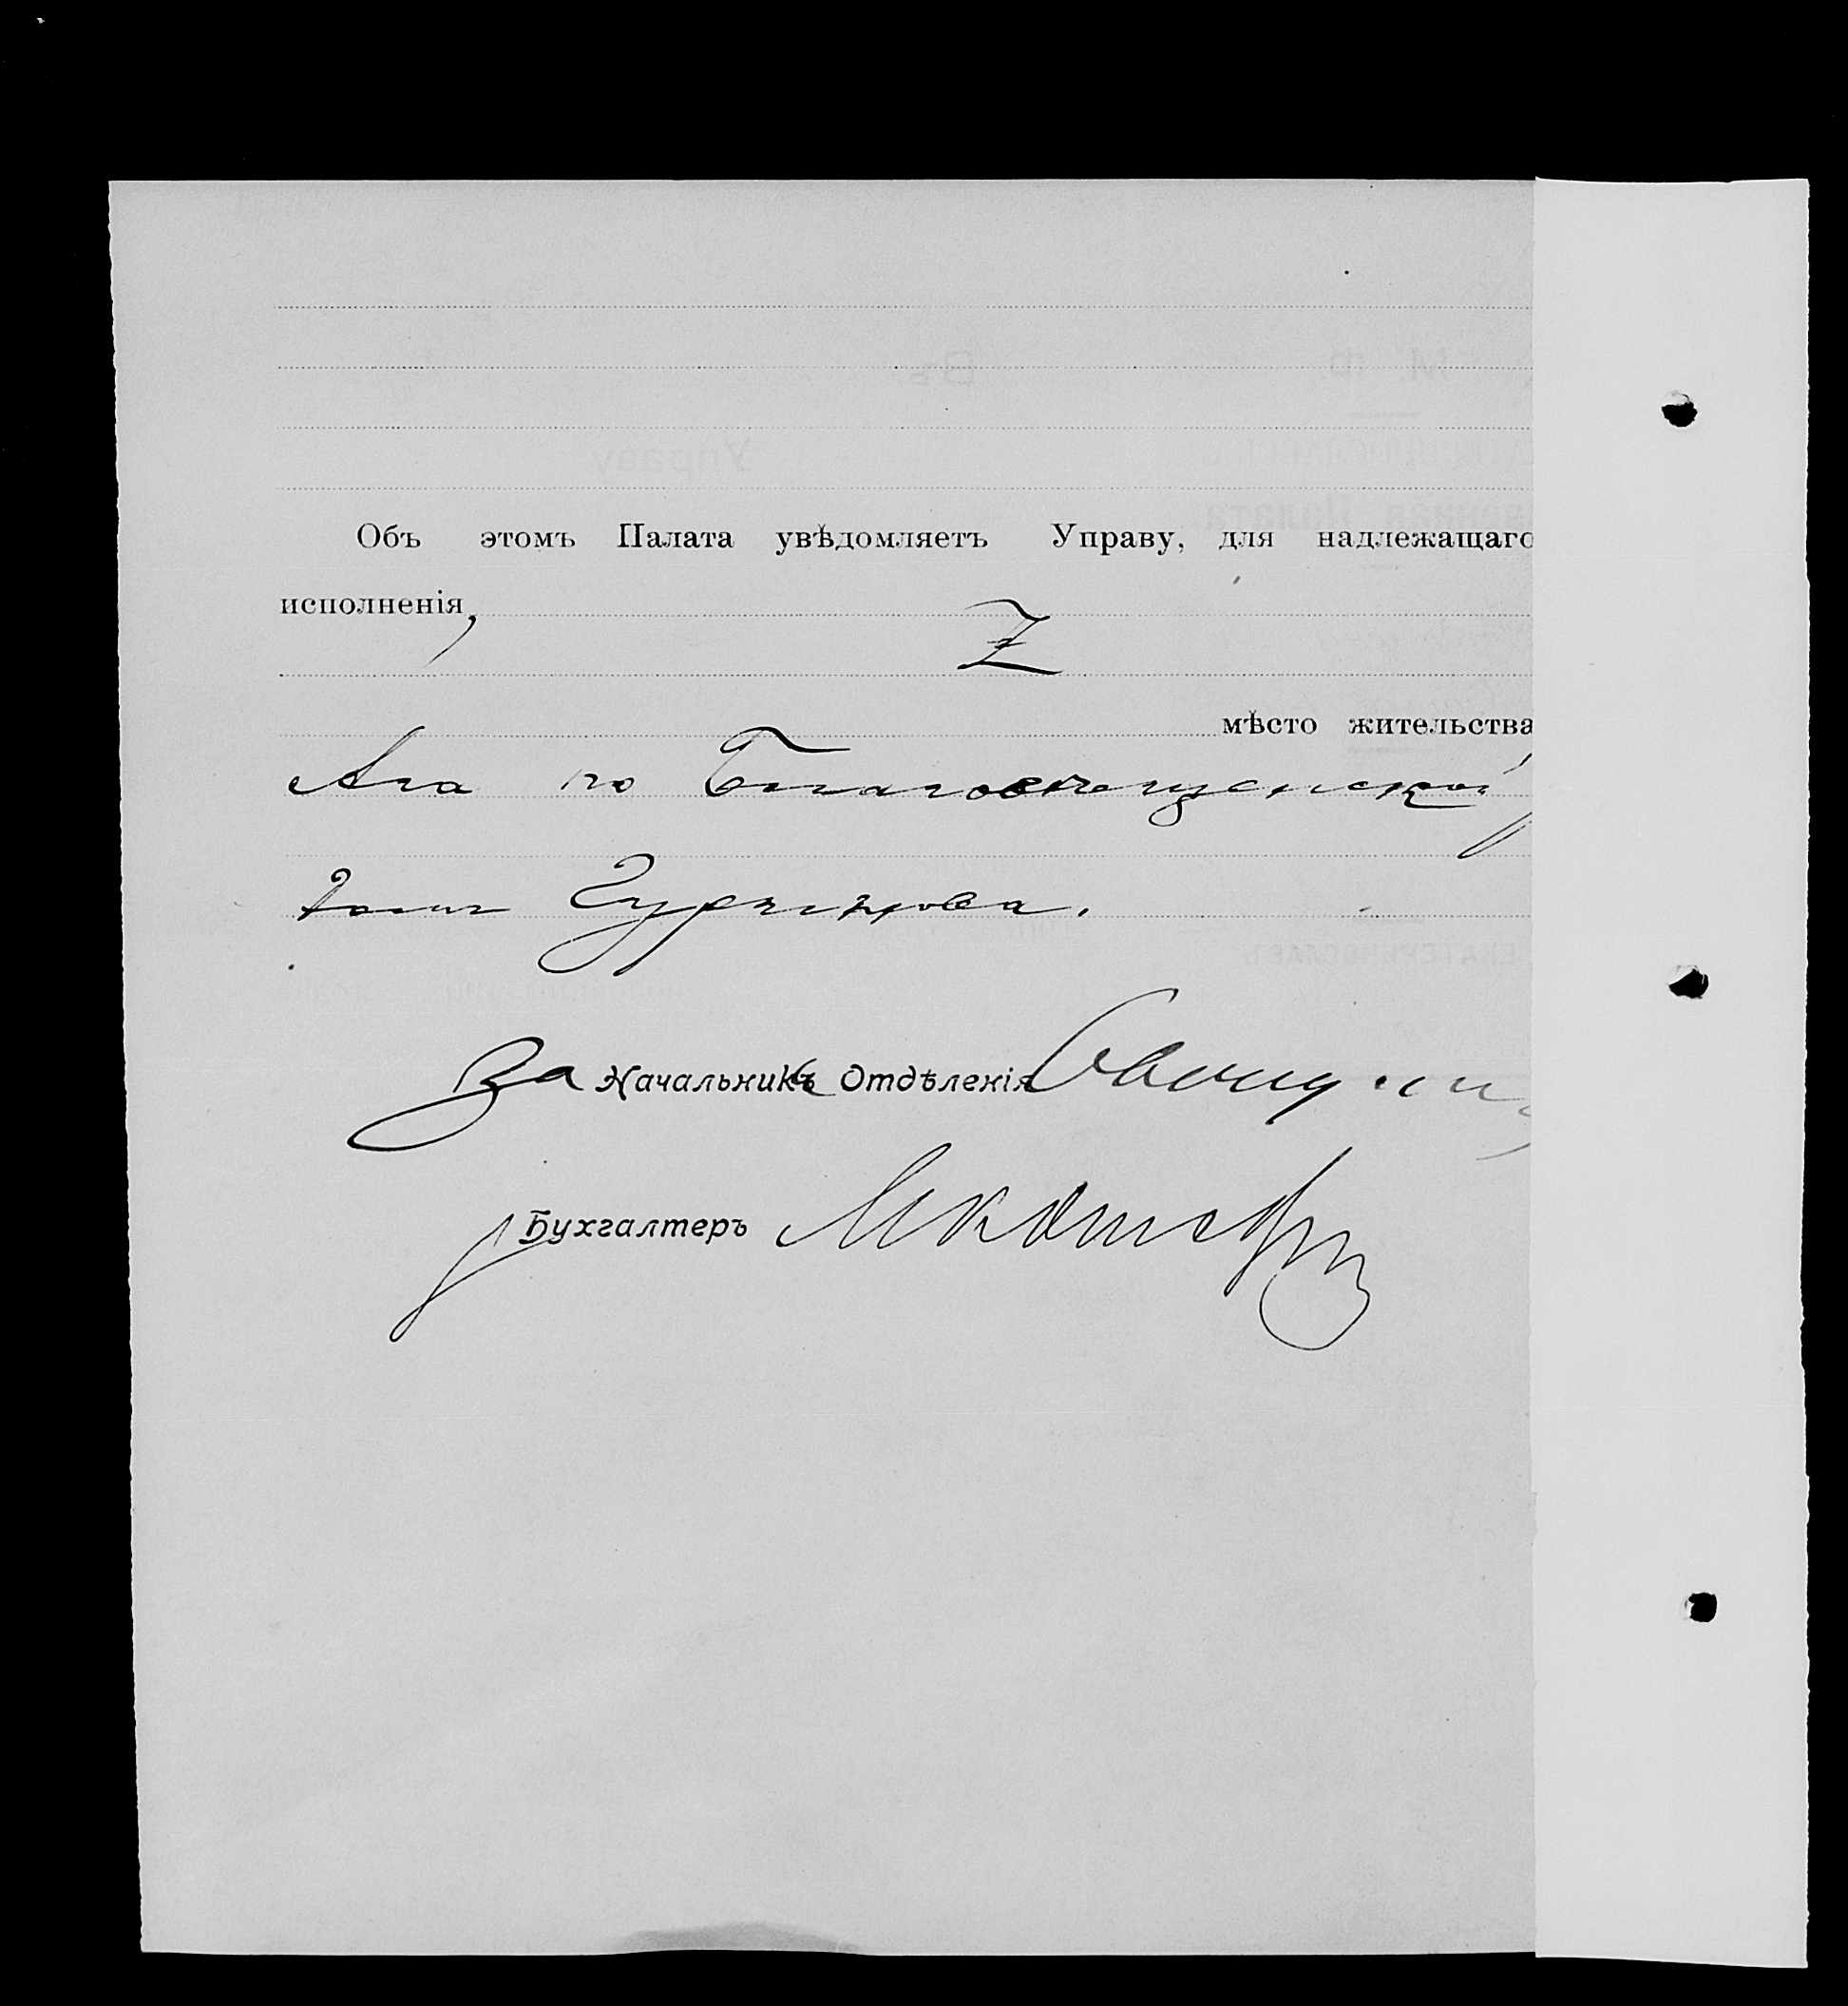 Объ этомъ Палата увѣдомляетъ Управу, для надлежащаго
исполненія,
Z
мѣсто жительства
Ага по Благовѣщенской
домъ
За Начальника Отдѣленія
Бухгалтеръ